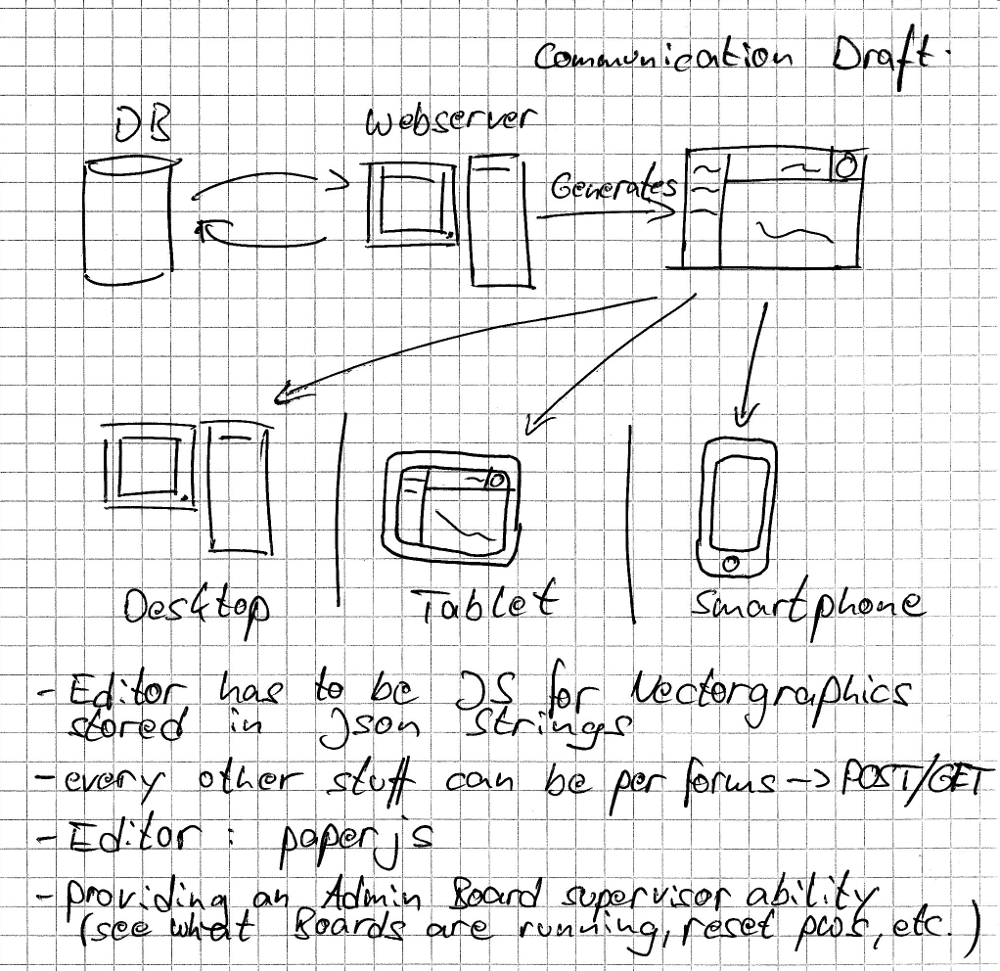 Communication Draft.
DB
Webserver
Generates
Desktop
Tablet
Smartphone
- Editor has to be JS for Vectorgraphics
stored in Json Strings
- every other stuff can be per forms -> POST/GET
- Editor : paperjs
- providing an Admin Board supervisor ability
(see what Boards are running, reset pws, etc.)